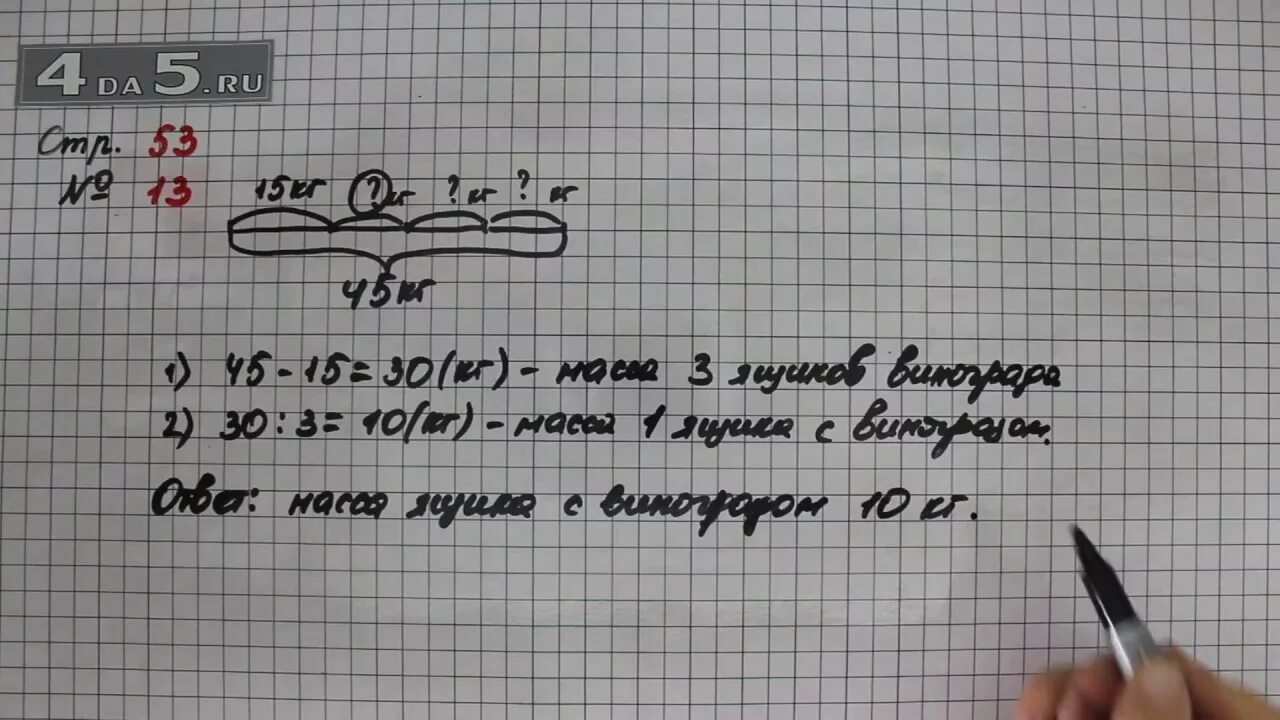 4DA5.RU
Стр. 53
№ 13
15кг ?кг ?кг ? кг
45кг
1) 45-15=30(кг) - масса 3 ящиков винограда
2) 30:3=10(кг) - масса 1 ящика с виноградом.
Ответ: масса ящика с виноградом 10 кг.